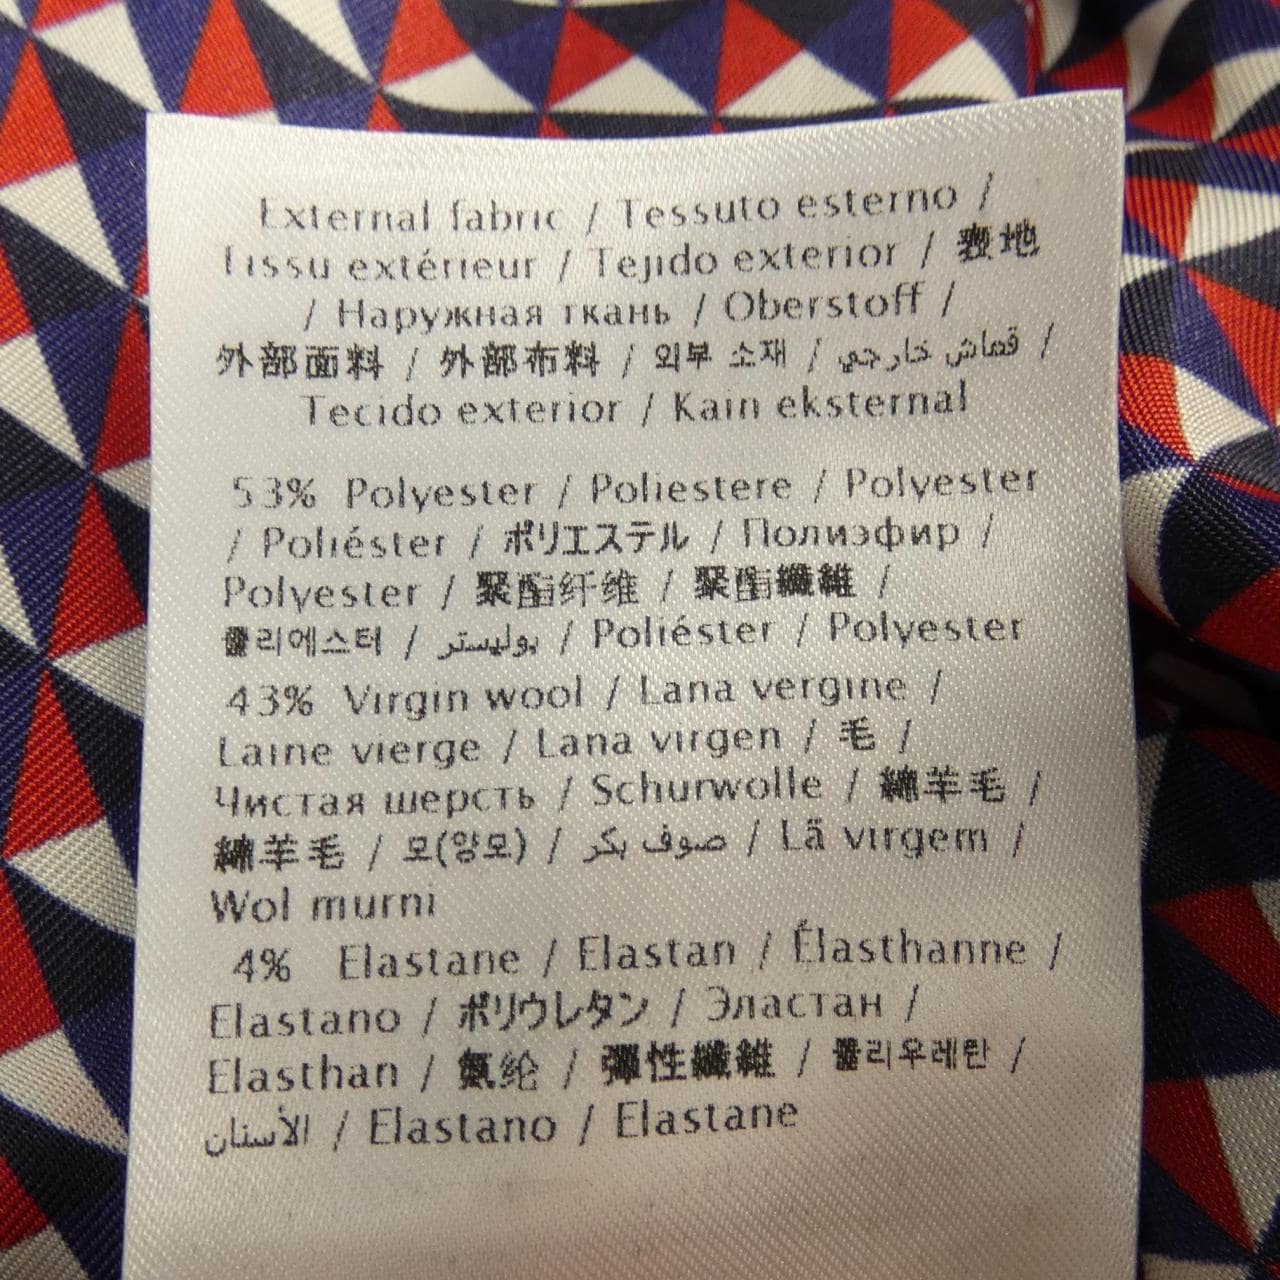 External fabric / Tessuto esterno /
Tissu extérieur / Tejido exterior / 表地
/ Наружная ткань / Oberstoff /
外部面料 / 外部布料 / 외부 소재 / قماش خارجي /
Tecido exterior / Kain eksternal
53% Polyester / Poliestere / Polyester
/ Poliéster / ポリエステル / Полиэфир /
Polyester / 聚酯纤维 / 聚酯纖維 /
폴리에스터 / بوليستر / Poliéster / Polyester
43% Virgin wool / Lana vergine /
Laine vierge / Lana virgen / 毛 /
Чистая шерсть / Schurwolle / 綿羊毛 /
綿羊毛 / 모(양모) / صوف بكر / Lã virgem /
Wol murni
4% Elastane / Elastan / Élasthanne /
Elastano / ポリウレタン / Эластан /
Elasthan / 氨纶 / 彈性纖維 / 폴리우레탄 /
الأسنان / Elastano / Elastane